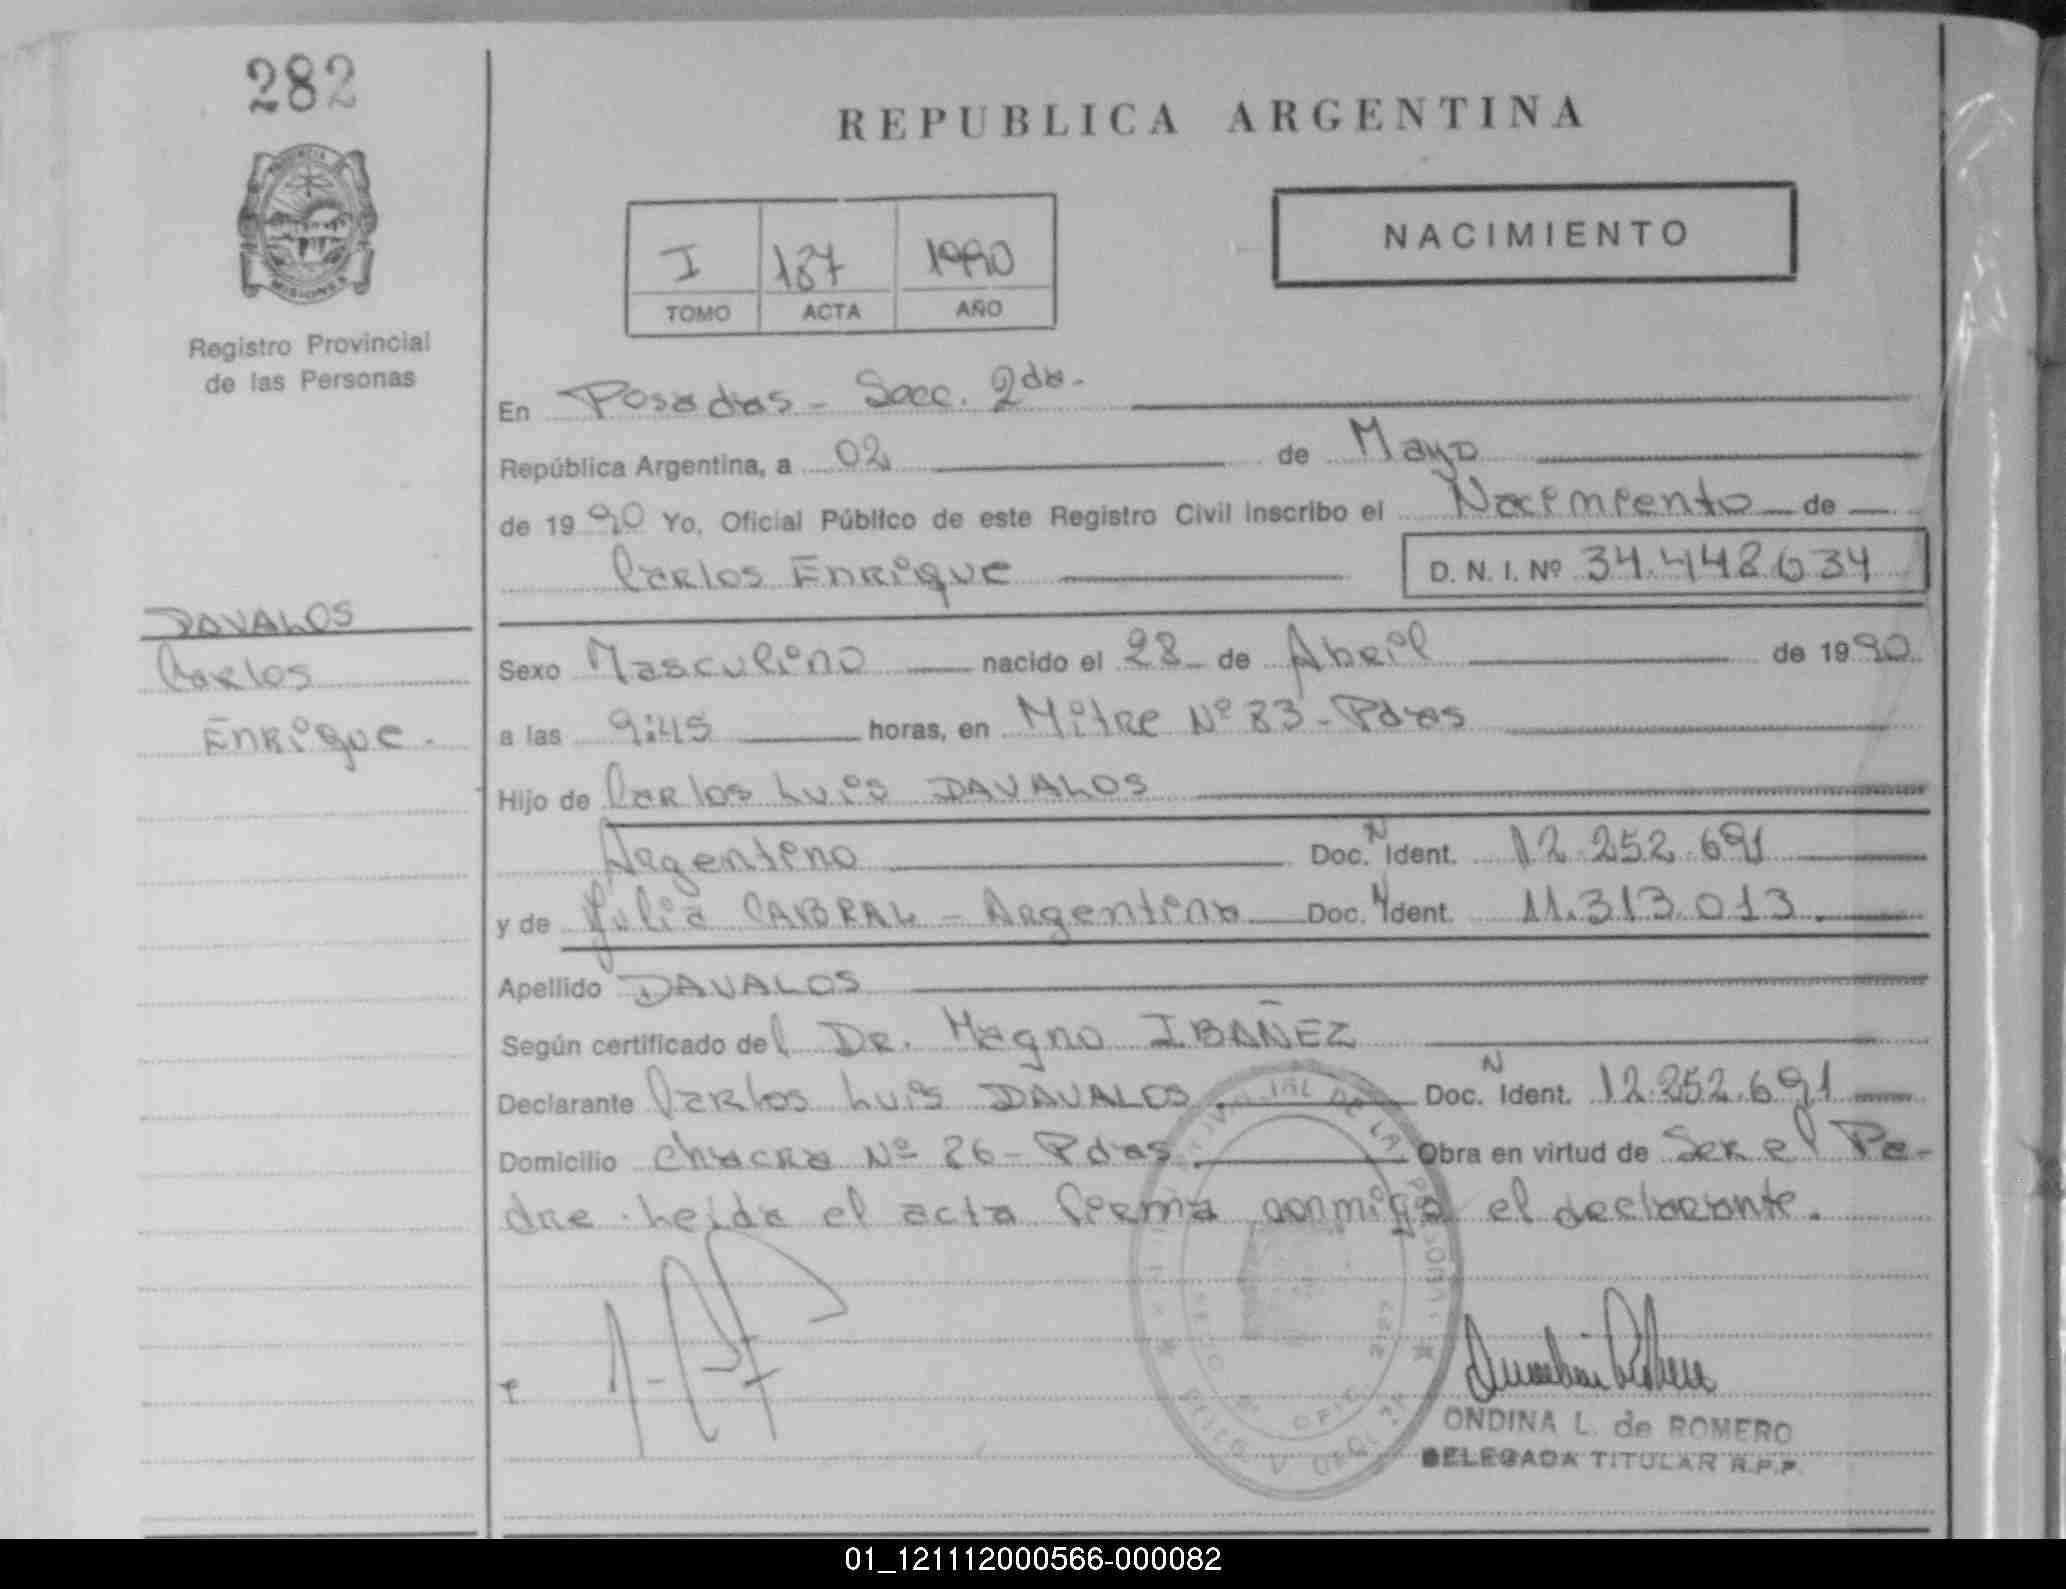 282
REPUBLICA ARGENTINA
NACIMIENTO
I 187 1990
TOMO ACTA AÑO
PROVINCIA DE
MISIONES
Registro Provincial
de las Personas
En Posadas - Secc. 2da.
República Argentina, a 02 de Mayo
de 1990 Yo, Oficial Público de este Registro Civil inscribo el Nacimiento de
Carlos Enrique D. N. I. Nº 34.448.634
DAVALOS
Carlos
Enrique.
Sexo Masculino nacido el 28 de Abril de 1990
a las 9:45 horas, en Mitre Nº 83 - Pdas
Hijo de Carlos Luis DAVALOS
Argentino Doc. N Ident. 12.252.691
y de Julia CABRAL - Argentina Doc. N Ident. 11.313.013.
Apellido DAVALOS
Según certificado del Dr. Magno IBAÑEZ
Declarante Carlos Luis DAVALOS. Doc. N Ident. 12.252.691
Domicilio Chacra Nº 26 - Pdas Obra en virtud de Ser el Pa-
dre. Leida el acta firma conmigo el declarante.
ONDINA L. de ROMERO
DELEGADA TITULAR R.P.P.
01_121112000566-000082